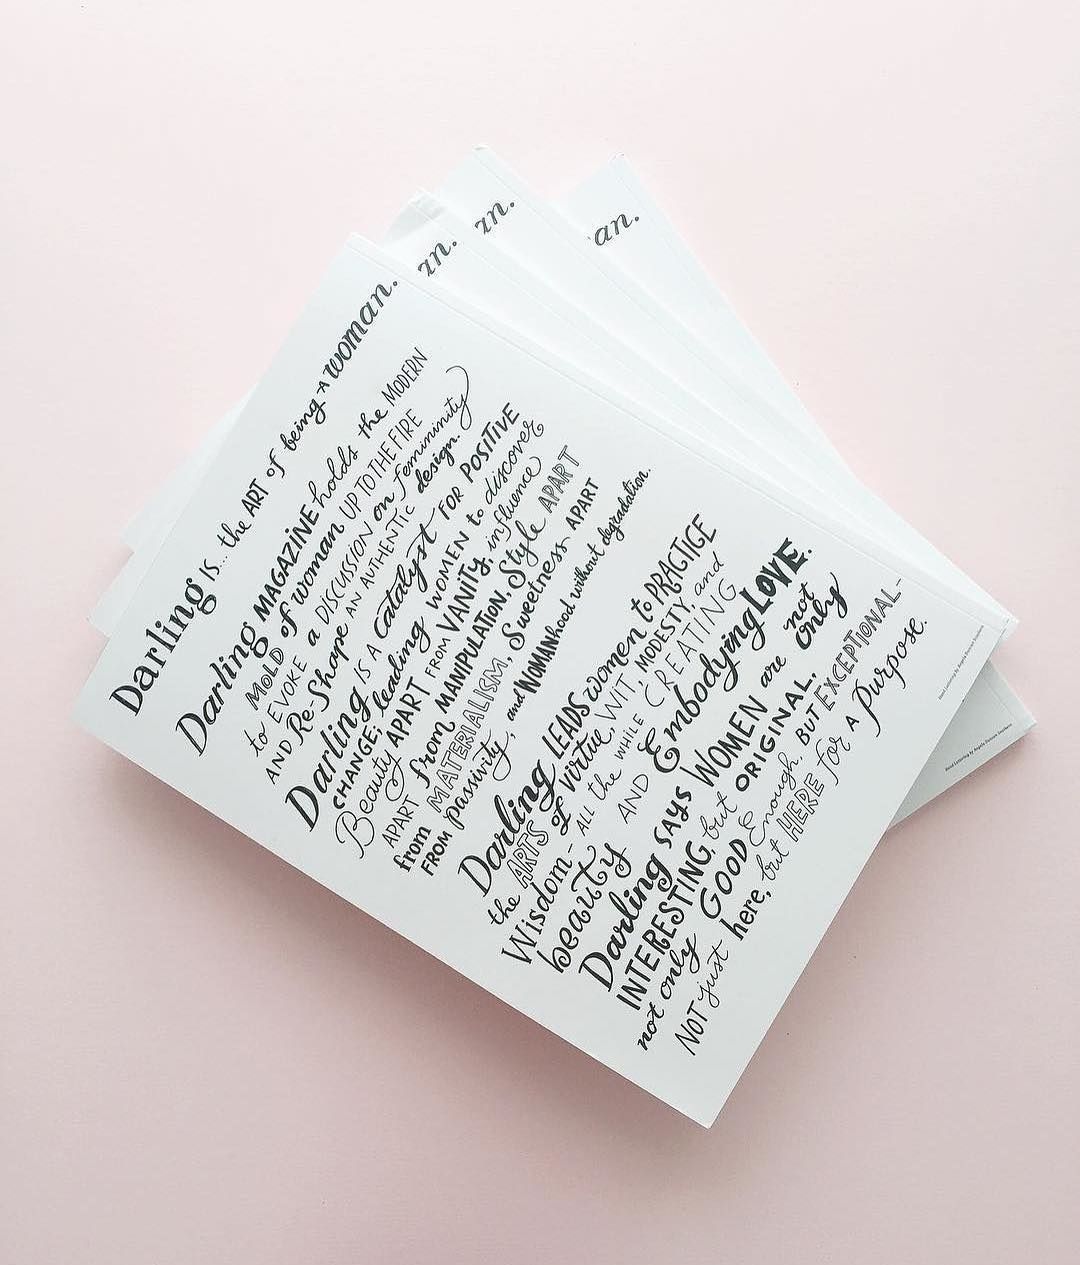 Darling is... the ART of being A woman.
Darling MAGAZINE holds the MODERN
MOLD of woman UP TO THE FIRE
to EVOKE a DISCUSSION on femininity
AND Re-Shape AN AUTHENTIC design.
Darling IS A catalyst FOR POSITIVE
CHANGE; leading WOMEN to discover
Beauty APART FROM VANITY, influence
APART from MANIPULATION, Style APART
from MATERIALISM, Sweetness APART
FROM passivity, and WOMANhood without degradation.
Darling LEADS women to PRACTICE
the ARTS of virtue, WIT, MODESTY, and
Wisdom- ALL the WHILE CREATING
beauty AND Embodying LOVE.
Darling SAYS WOMEN are not
INTERESTING, but ORIGINAL, only
not only GOOD Enough, BUT EXCEPTIONAL-
NOT just here, but HERE for A Purpose.
an.
an.
an.